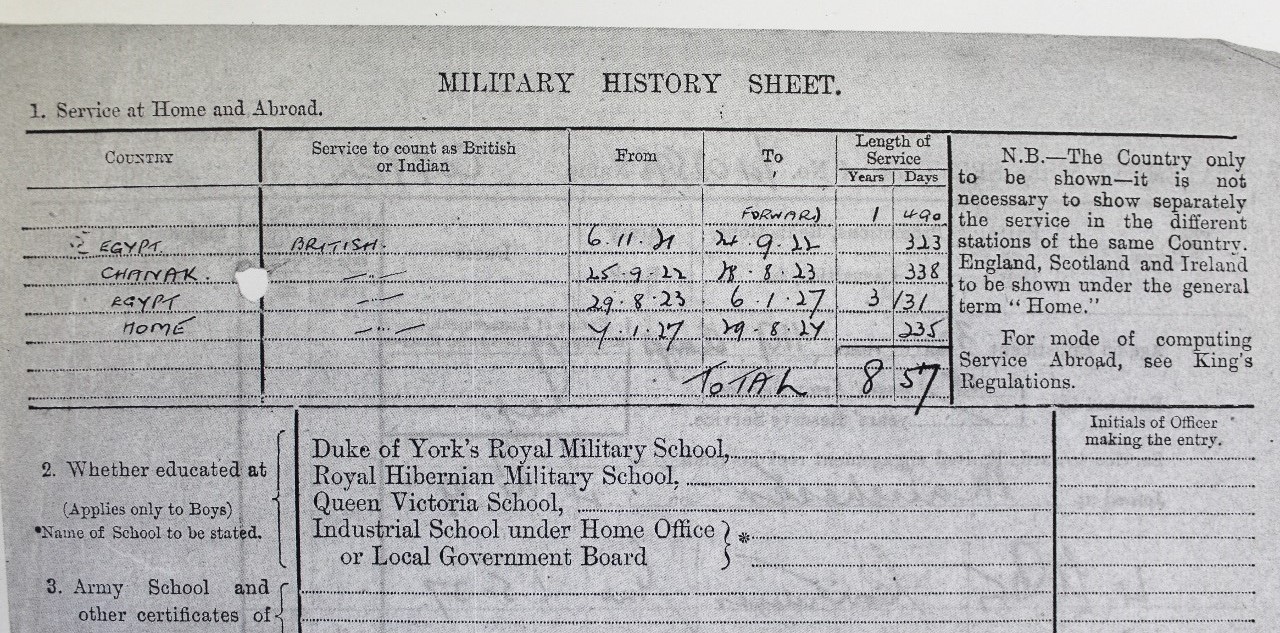 MILITARY HISTORY SHEET.
1. Service at Home and Abroad.
COUNTRY Service to count as British or Indian From To Length of Service Years Days
FORWARD 1 490
EGYPT BRITISH. 6.11.21 24.9.22 323
CHANAK. —"— 25.9.22 28.8.23 338
EGYPT —"— 29.8.23 6.1.27 3 131
HOME —"— 7.1.27 29.8.27 235
TOTAL 8 57
N.B.—The Country only
to be shown—it is not
necessary to show separately
the service in the different
stations of the same Country.
England, Scotland and Ireland
to be shown under the general
term "Home."
For mode of computing
Service Abroad, see King's
Regulations.
Initials of Officer
making the entry.
2. Whether educated at
(Applies only to Boys)
*Name of School to be stated.
Duke of York's Royal Military School,
Royal Hibernian Military School,
Queen Victoria School,
Industrial School under Home Office
or Local Government Board
*
3. Army School and
other certificates of